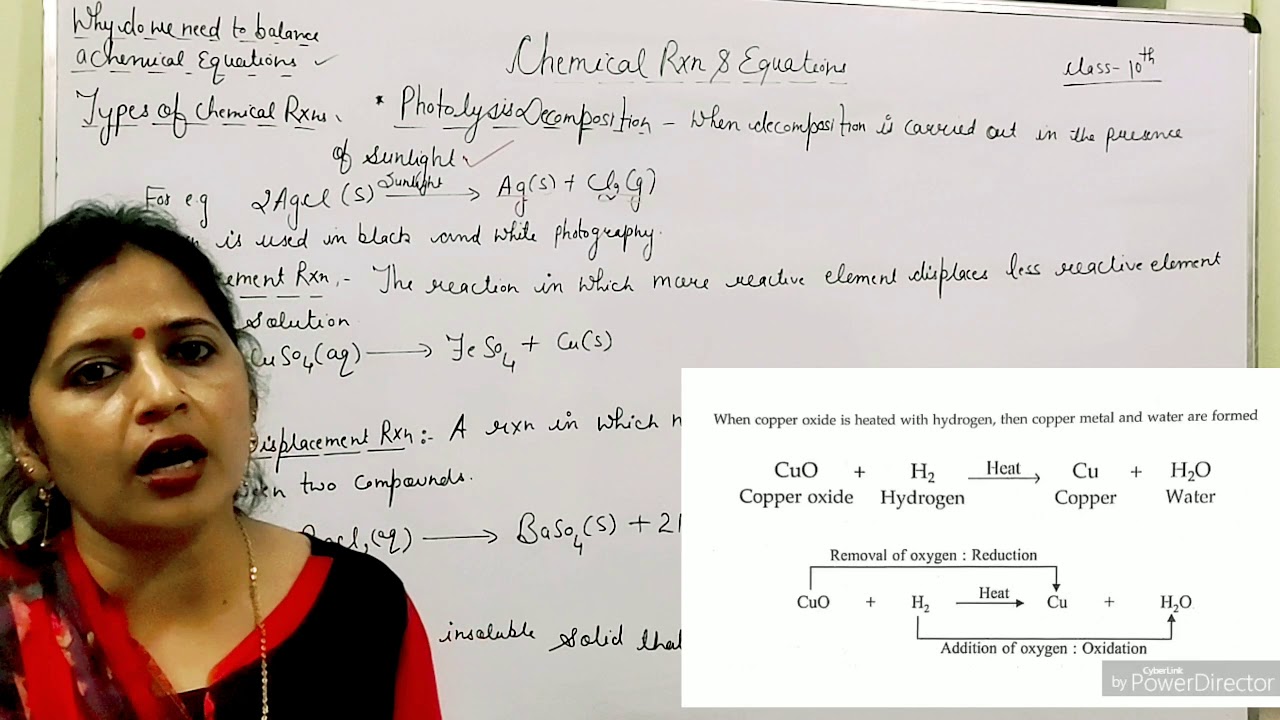 Why do we need to balance
a Chemical Equations ✓
Chemical Rxn & Equations
Class- 10th
Types of Chemical Rxns.
* Photolysis Decomposition - When decomposition is carried out in the presence
of Sunlight. ✓
For e.g 2AgCl (s) Sunlight → Ag(s) + Cl2(g)
is used in black and white photography.
ement Rxn.- The reaction in which more reactive element displaces less reactive element
solution
CuSO4(aq) → FeSO4 + Cu(s)
isplacement Rxn:- A rxn in which
two compounds.
(aq) → BaSO4(s) + 2
insoluble solid that
When copper oxide is heated with hydrogen, then copper metal and water are formed
CuO + H2 Heat → Cu + H2O
Copper oxide Hydrogen Copper Water
Removal of oxygen : Reduction
CuO + H2 Heat → Cu + H2O
Addition of oxygen : Oxidation
CyberLink
by PowerDirector